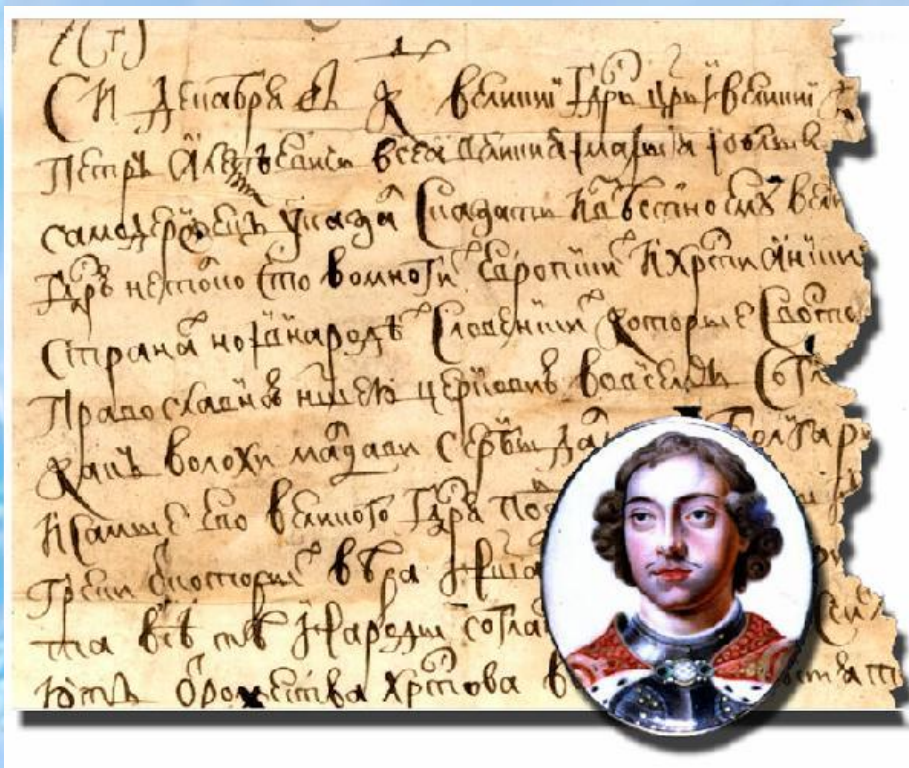 СИ Декабря въ К великии Гдрь црь и великии
Петръ Алеѣевичь всеа Великиа и малыа и бѣлыа
самодержецъ указал сказати извесно ему вели
Гдрю не толко что во многих Европских и Хрстиянских
странах но и в народѣх Словенских которые с восто
Православною нашею церковию во всемъ Согл
какъ волохи мадави сербы дал болгары
и самые его великого Гдря по
Греки от которых вѣра наша
та всѣ тѣ народы согла
ютъ от рожества Христова в